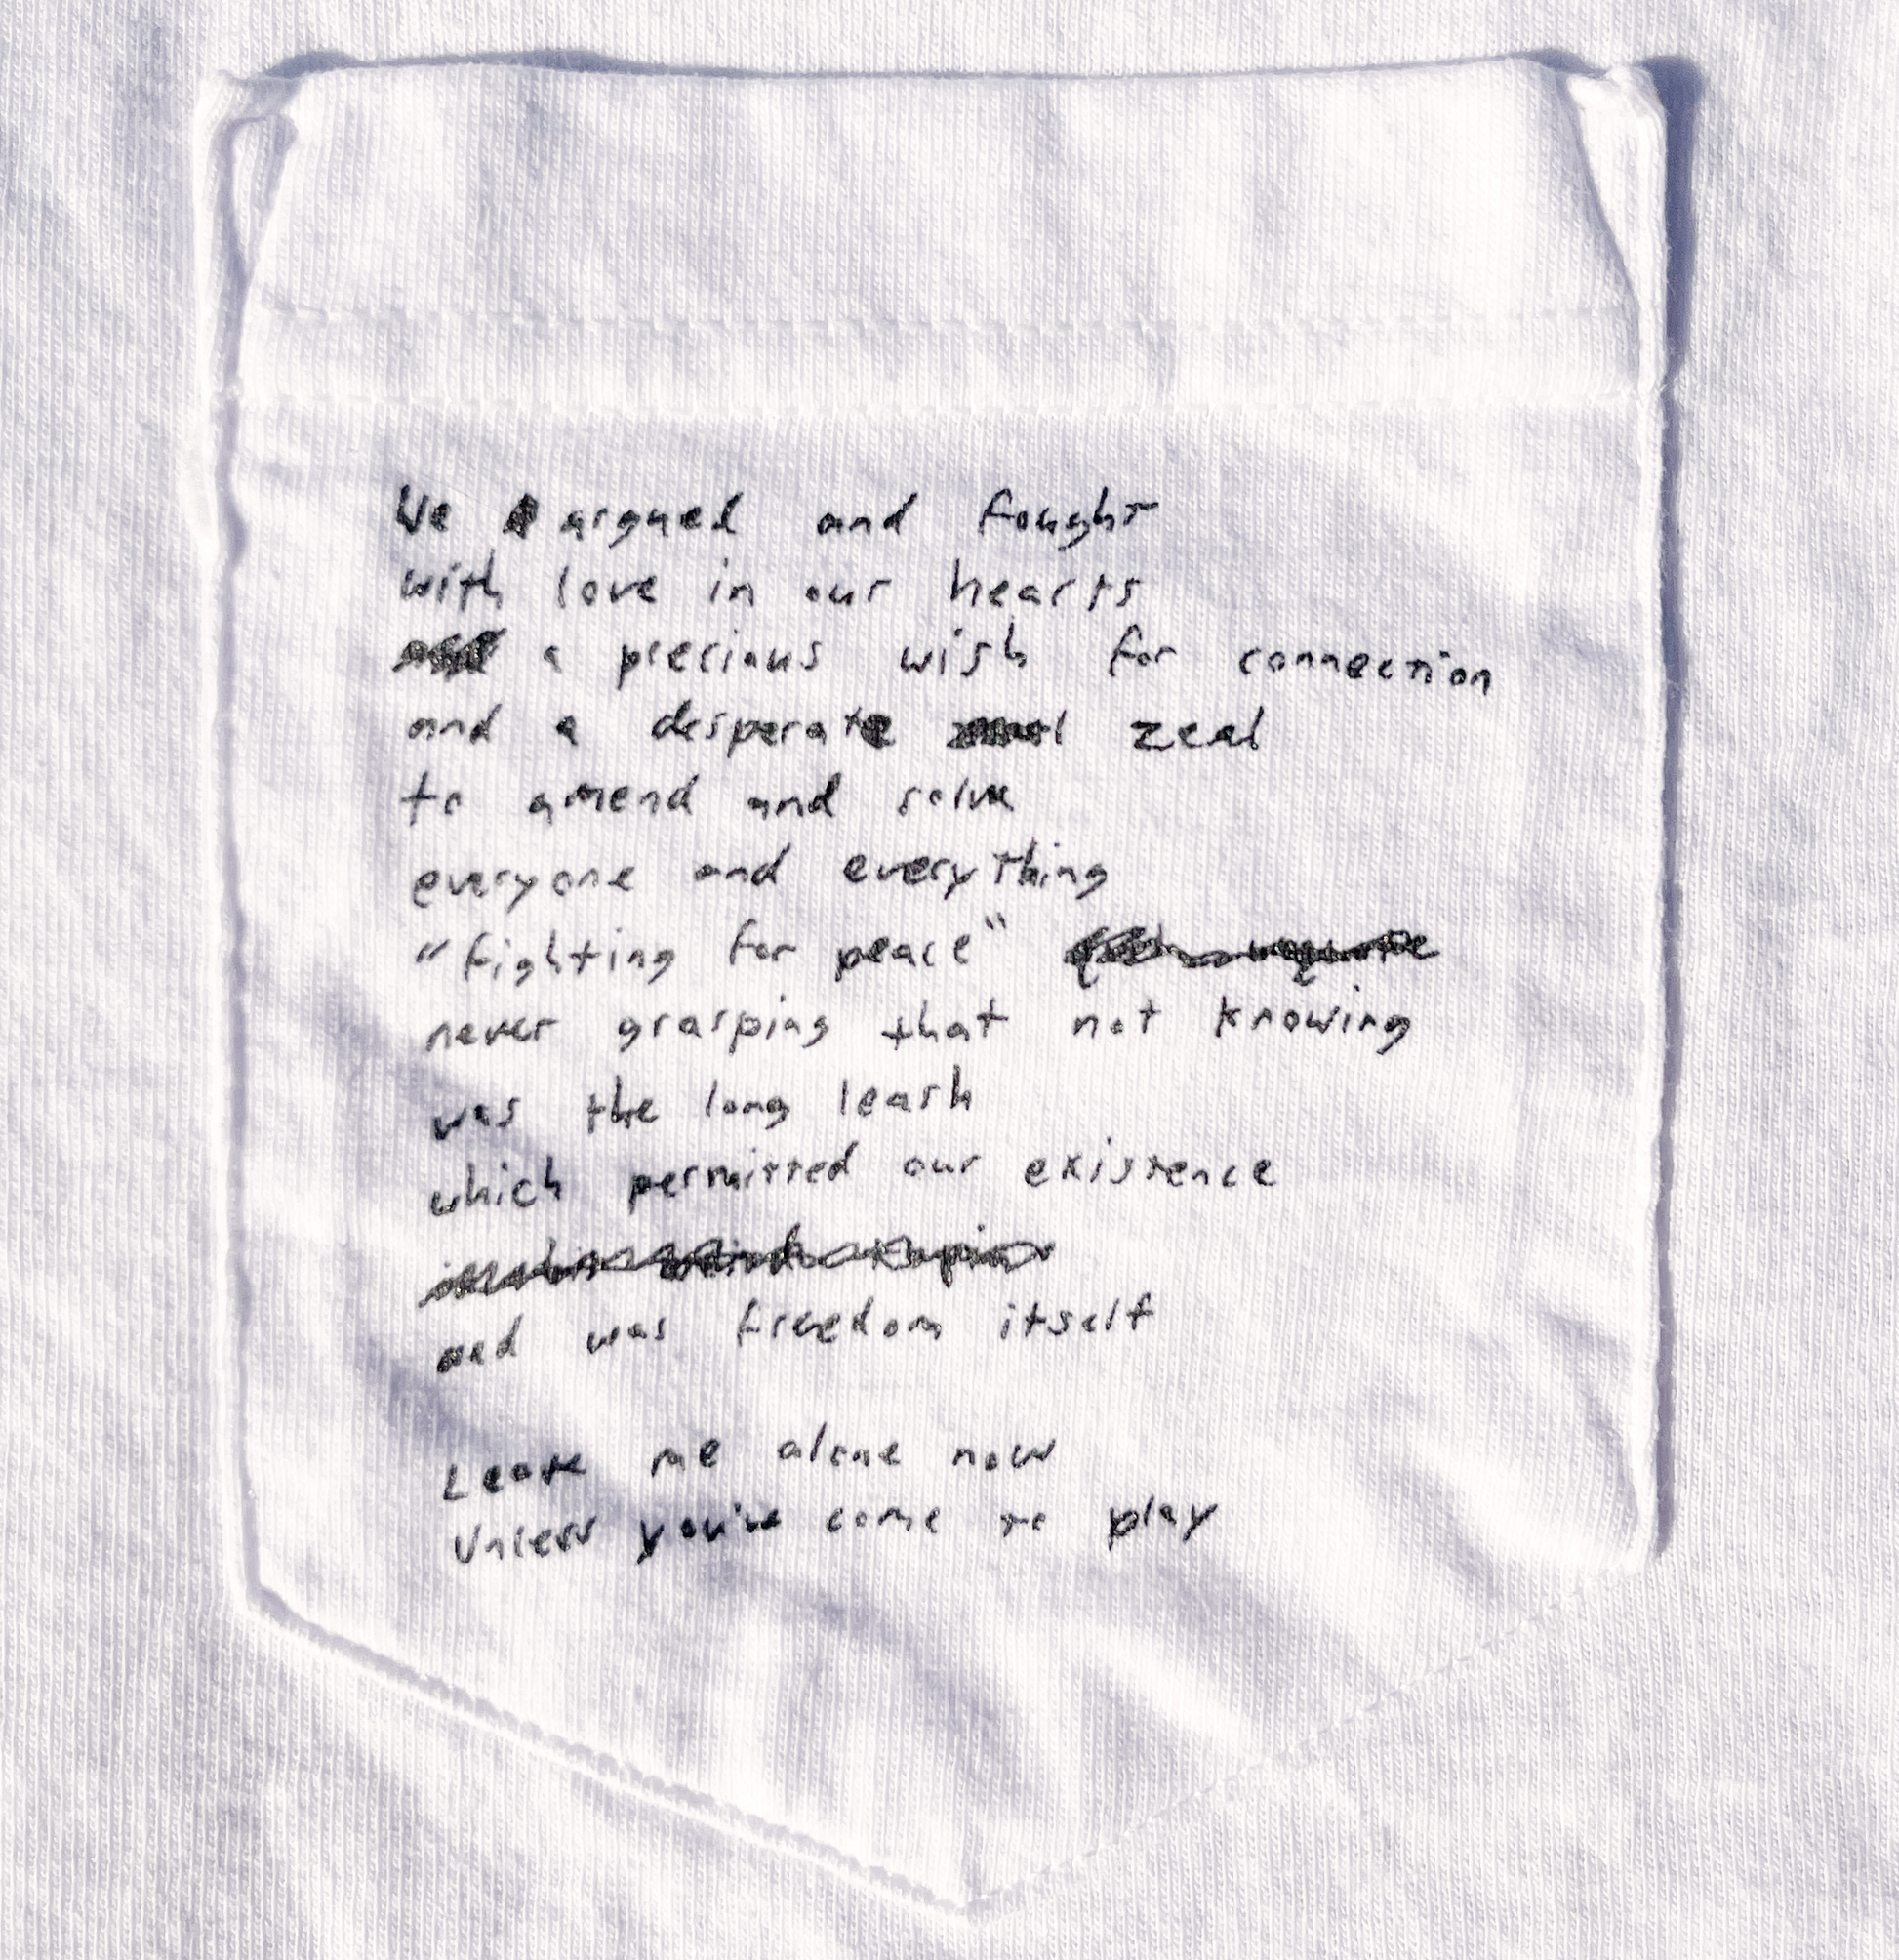 We argued and fought
with love in our hearts
a precious wish for connection
and a desperate zeal
to amend and solve
everyone and everything
"fighting for peace"
never grasping that not knowing
was the long leash
which permitted our existence
and was freedom itself
Leave me alone now
Unless you've come to play